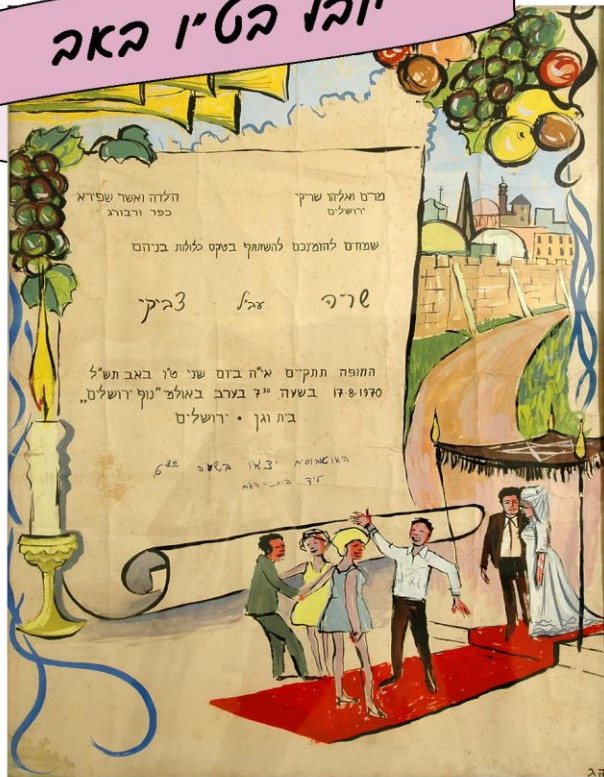 יובל בט"ו באב
מרים ואליהו שריקי הילדה ואשר שפירא
ירושלים כפר ורבורג
שמחים להזמינכם להשתתף בטקס כלולות בניהם
שרה עב"ל צביקי
החופה תתקיים אי"ה ביום שני ט"ו באב תש"ל
17.8.1970 בשעה 7³⁰ בערב באולמי "נוף ירושלים"
בית וגן • ירושלים
האוטובוסים יצאו בשעה
ליד בית-העם